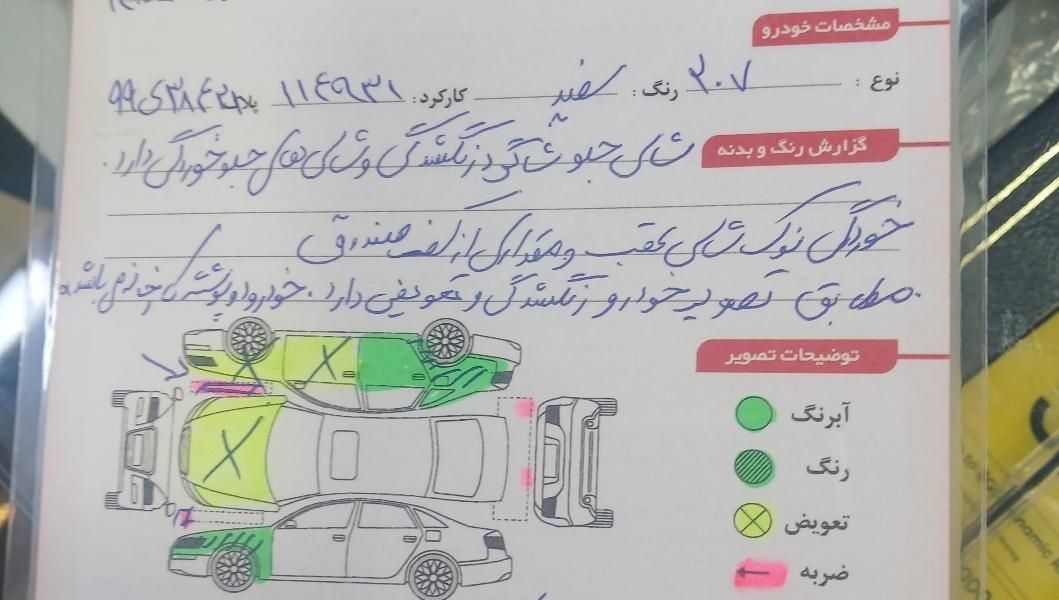 مشخصات خودرو
نوع : ۲۰۷ رنگ : سفید کارکرد: ۱۱۴۹۳۱ پلاک
گزارش رنگ و بدنه شاسی جلو شاگرد رنگشدگی و شاسی های جلو خوردگی دارد.
خوردگی نوک شاسی عقب و مقداری از کف صندوق
مطابق تصویر خودرو رنگشدگی و تعویضی دارد. خودرو
توضیحات تصویر
آبرنگ
رنگ
تعویض
ضربه